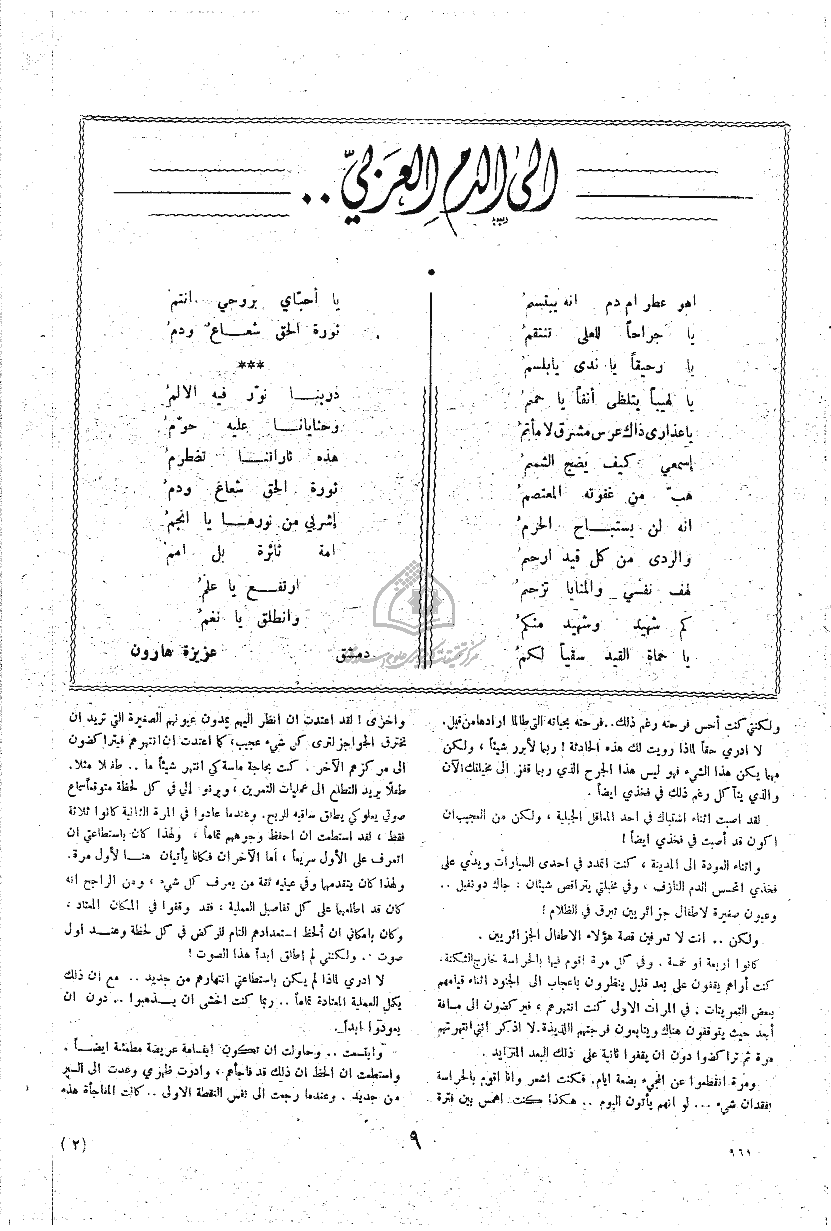 الى الدم العربيّ ..
اهو عطر ام دم انه يبتسمُ
يا جراحاً للعلى تنتقمُ
يا رحيقاً يا ندى يابلسمُ
يا لهيباً يتلظى أنفاً يا حممُ
ياعذارى ذاك عرس مشرق لا مأتمُ
إسمعي كيف يضج الشممُ
هبّ من غفوته المعتصمُ
انه لن يستبــاح الحرمُ
والردى من كل قيد ارحمُ
لهف نفسي والمنايا تزحمُ
كم شهيد وشهيد منكمُ
يا حماة القيد سقياً لكمُ
يا أحبّاي بروحي انتمُ
ثورة الحق شعــاعٌ ودمُ
***
دربنــا نوّر فيه الالمُ
وحنايانــا عليه حوّمُ
هذه ثاراتنــا تضطرمُ
ثورة الحق شعاعٌ ودمُ
إشربي من نورهــا يا انجمُ
امة ثائرة بل اممُ
ارتفــع يا علمُ
وانطلق يا نغمُ
دمشق عزيزة هارون
ولكنني كنت أحس فرحته رغم ذلك..فرحته بحياته التي طالما ارادها من قبل.
لا ادري حقاً لماذا رويت لك هذه الحادثة ! ربما لأبرر شيئاً ، ولكن
مهما يكن هذا الشيء فهو ليس هذا الجرح الذي ربما قفز الى مخيلتك الآن
والذي يتآكل رغم ذلك في فخذي ايضاً .
لقد اصبت اثناء اشتباك في احد المعاقل الجبلية ، ولكن من العجيب ان
اكون قد أصبت في فخذي ايضاً !
واثناء العودة الى المدينة ، كنت اتمدد في احدى السيارات ويدي على
فخذي اتحسس الدم النازف ، وفي مخيلتي يتراقص شيئان : جاك دونفيل ..
وعيون صغيرة لاطفال جزائريين تبرق في الظلام !
ولكن .. انت لا تعرفين قصة هؤلاء الاطفال الجزائريين .
كانوا اربعة او خمسة . وفي كل مرة اقوم فيها بالحراسة خارج الثكنة.
كنت أراهم يقفون على بعد قليل ينظرون باعجاب الى الجنود اثناء قيامهم
ببعض التمرينات . في المرات الاولى كنت انتهرهم ، فيركضون الى مسافة
أبعد حيث يتوقفون هناك ويتابعون فرجتهم اللذيذة.لا اذكر انني انتهرتهم
مرة ثم تراكضوا دون ان يقفوا ثانية على ذلك البعد المتزايد .
ومرة انقطعوا عن المجيء بضعة ايام. فكنت اشعر وانا اقوم بالحراسة
بفقدان شيء ... لو انهم يأتون اليوم .. هكذا كنت اهمس بين فترة
واخرى ! لقد اعتدت ان انظر اليهم يمدون عيونهم الصغيرة التي تريد ان
تخترق الحواجز لترى كل شيء عجيب، كما اعتدت ان انتهرهم فيتراكضون
الى مركزهم الآخر . كنت بحاجة ماسة كي انتهر شيئاً ما .. طفلا مثلا.
طفلًا يريد التطلع الى عمليات التمرين ، ويرنو الي في كل لحظة متوقعاً سماع
صوتي يعلو كي يطلق ساقيه للريح. وعندما عادوا في المرة الثانية كانوا ثلاثة
فقط ، لقد استطعت ان احفظ وجوههم تماماً ، ولهذا كان باستطاعتي ان
اتعرف على الأول سريعاً ، اما الآخران فكانا يأتيان هنــا لأول مرة.
ولهذا كان يتقدمهما وفي عينيه ثقة من يعرف كل شيء ، ومن الراجح انه
كان قد اطلعهما على كل تفاصيل العملية ، فقد وقفوا في المكان المعتاد ،
وكان بامكاني أن ألحظ استعدادهم التام للركض في كل لحظة وعنــد اول
صوت .. ولكنني لم اطلق ابداً هذا الصوت !
لا ادري لماذا لم يكن باستطاعتي انتهارهم من جديد .. مع ان ذلك
يكمل العملية المعتادة تماماً .. ربما كنت اخشى ان يــذهبوا .. دون ان
يعودوا ابداً..
وابتسمت .. وحاولت ان تكون ابتسامة عريضة مطمئنة ايضــاً .
واستطعت ان الحظ ان ذلك قد فاجأهم ، وادرت ظهري وعدت الى السير
من جديد . وعندما رجعت الى نفس النقطة الاولى .. كانت المفاجأة هذه
٩٦١
٩
(٢)